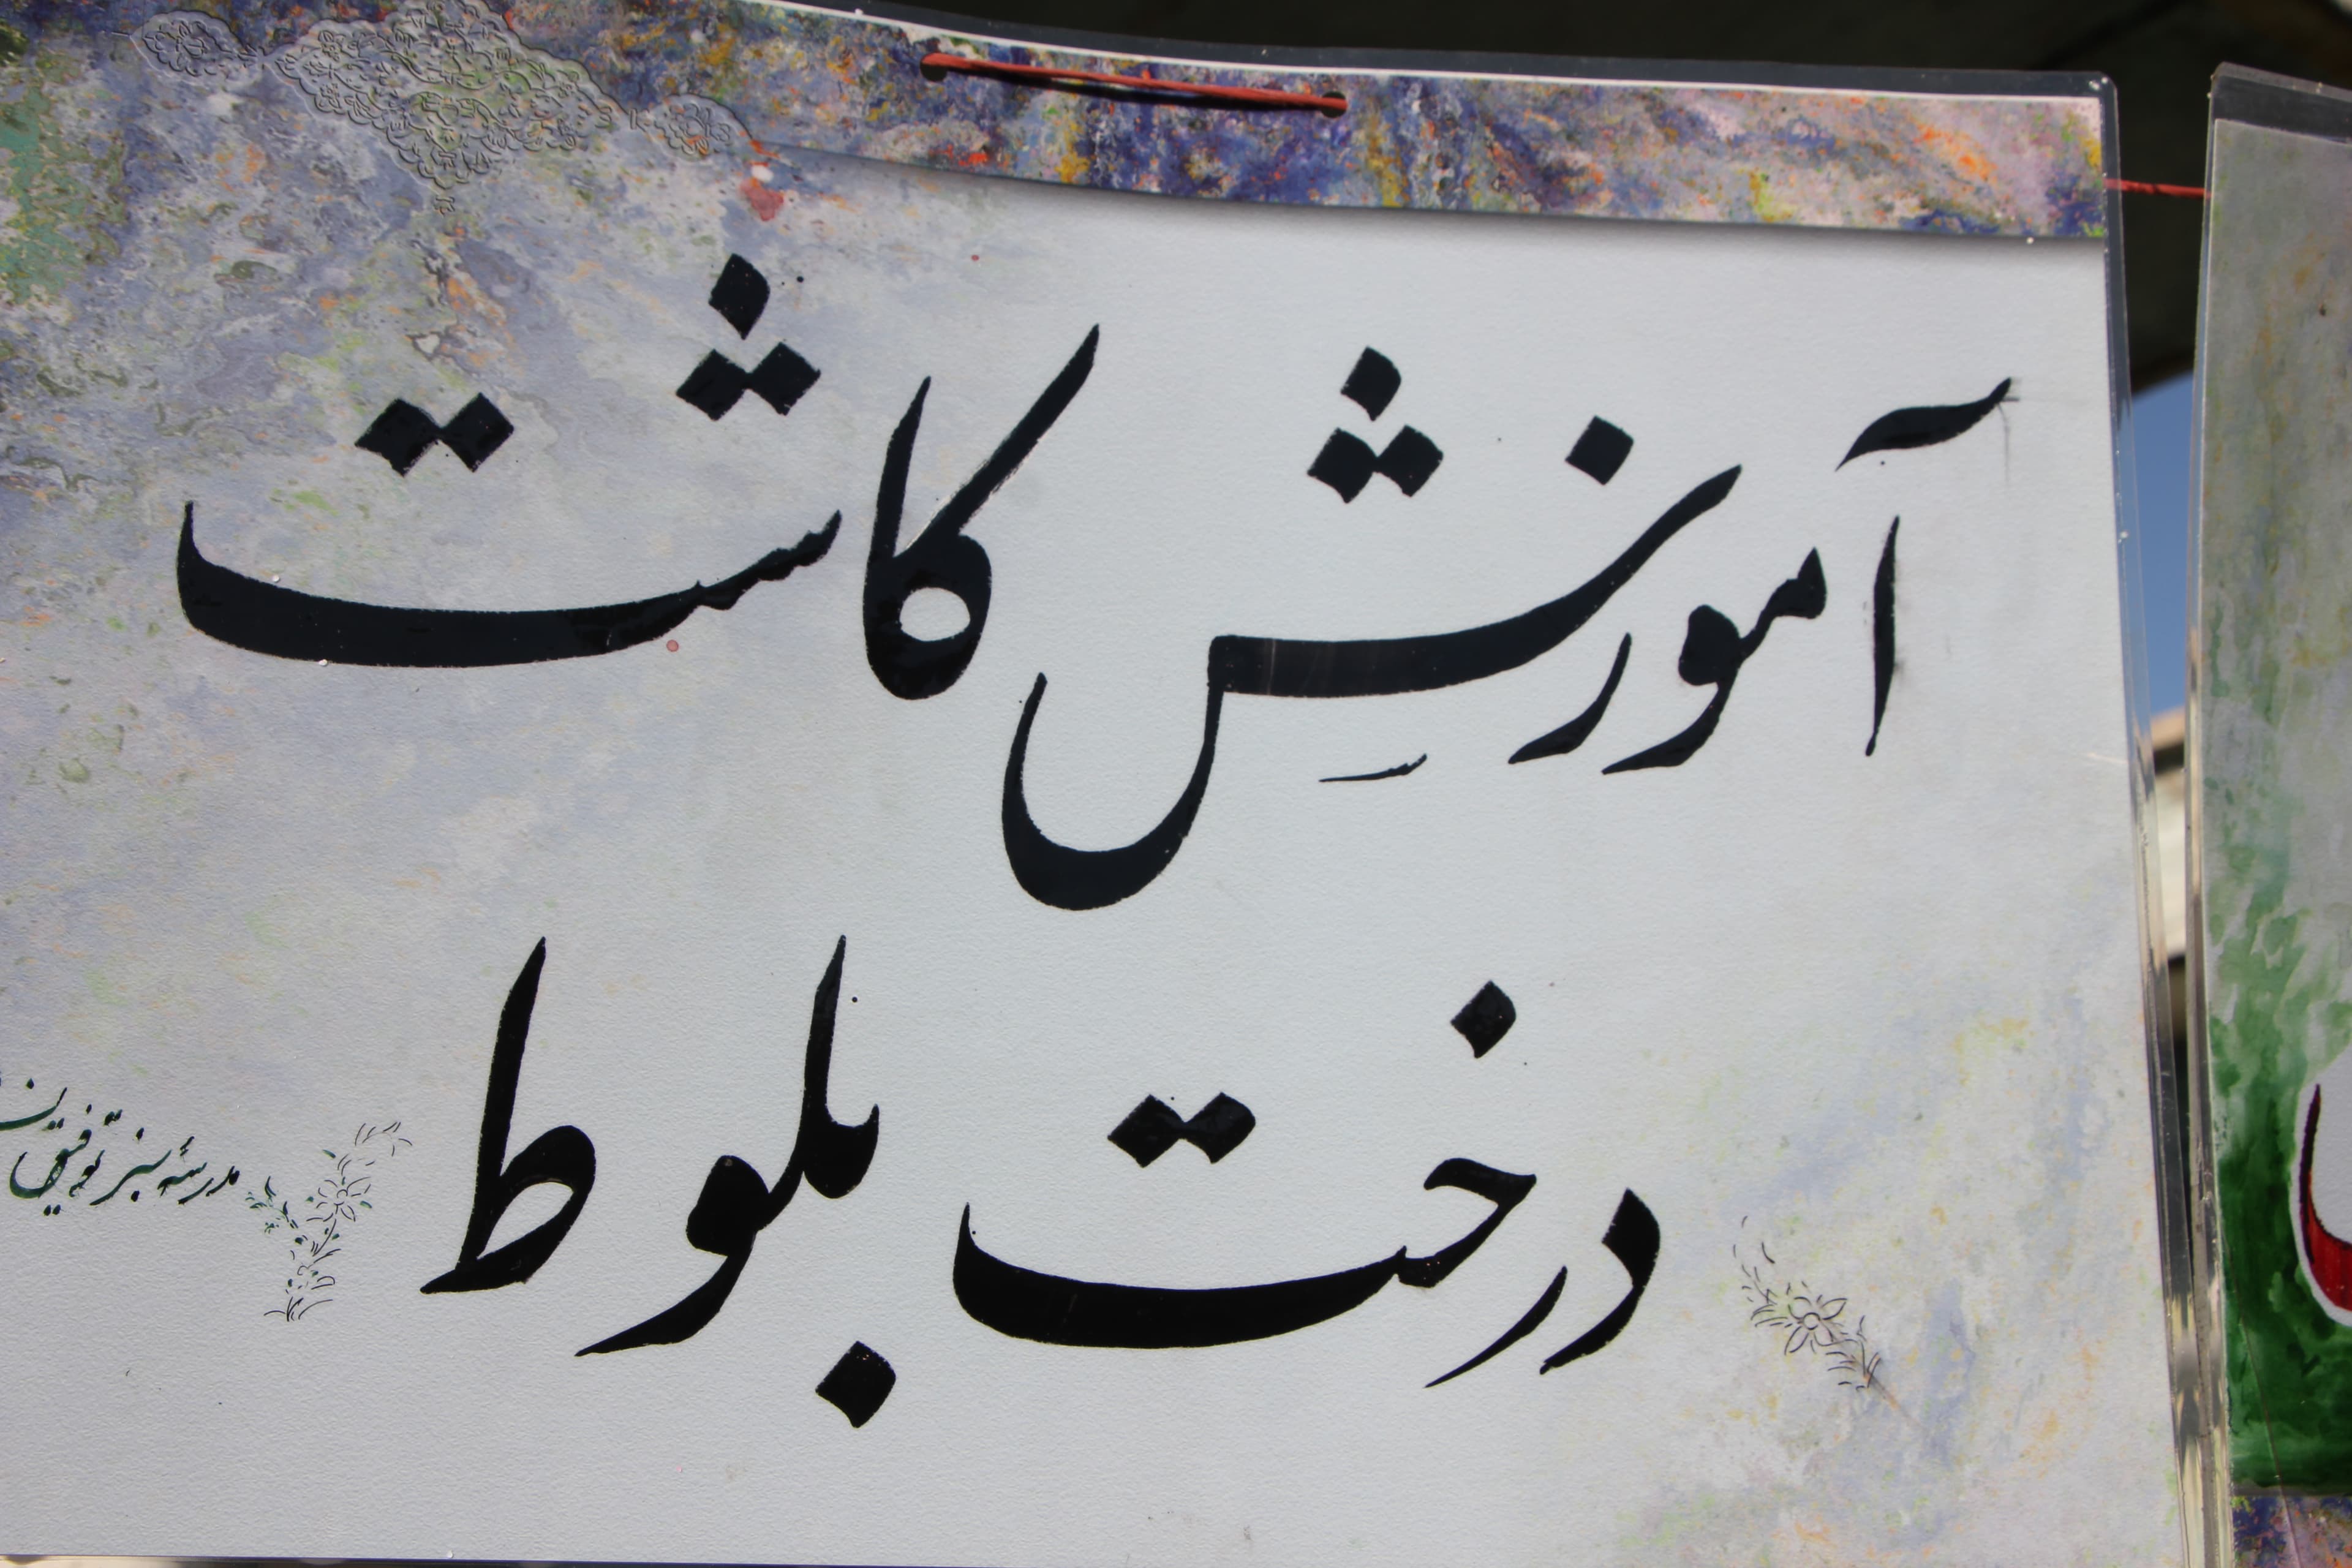 آموزشِ کاشت
درخت بلوط
مدرسهٔ سبز توفیق